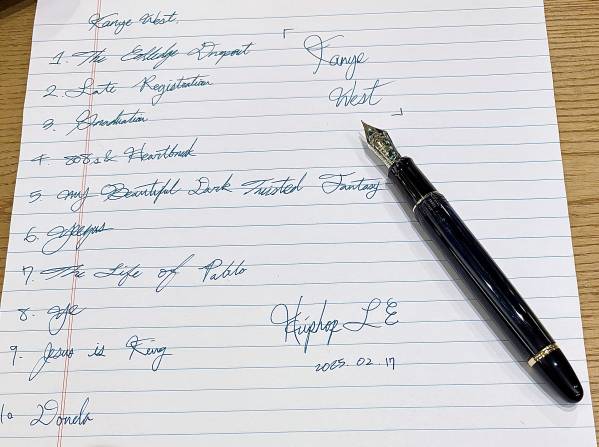 Kanye West.
1. The Colledge Dropout
2. Late Registration
3. Graduation
4. 808s & Heartbreak
5. My Beautiful Dark Twisted Fantasy
6. Yeezus
7. The Life of Pablo
8. ye
9. Jesus is King
10 Donda
「Kanye
West」
Hiphop LE
2025. 02. 17